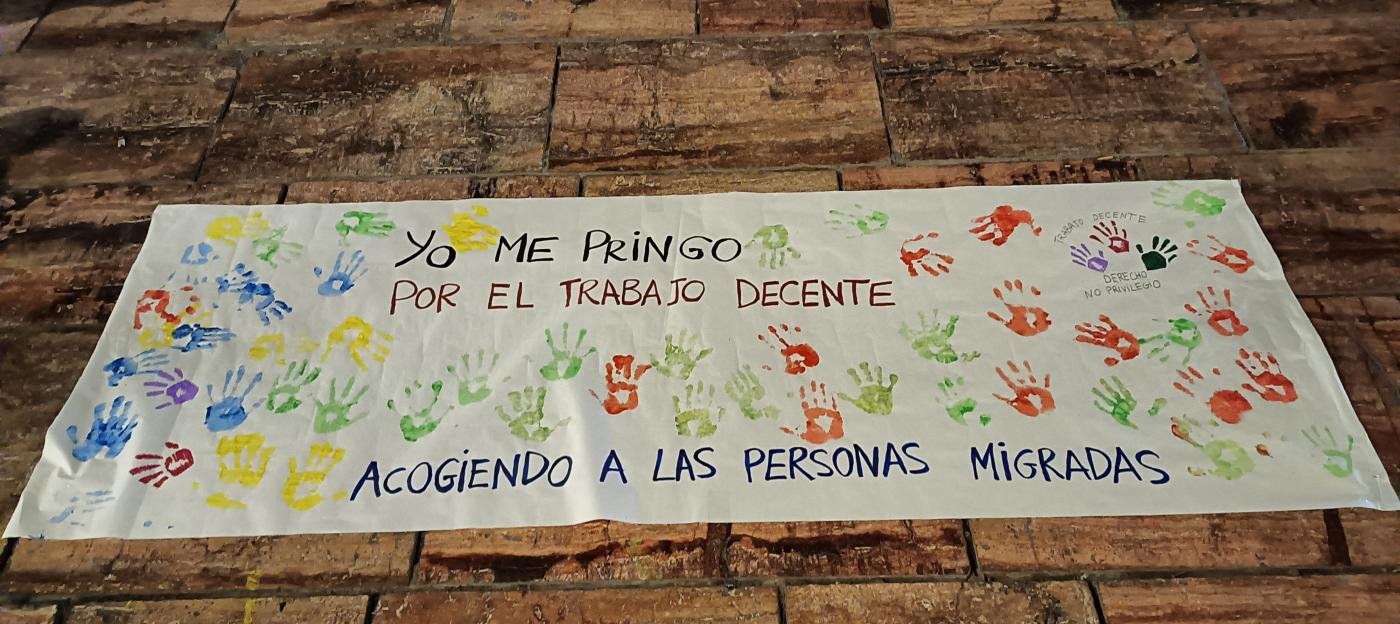 YO ME PRINGO
POR EL TRABAJO DECENTE
ACOGIENDO A LAS PERSONAS MIGRADAS
TRABAJO DECENTE
DERECHO
NO PRIVILEGIO